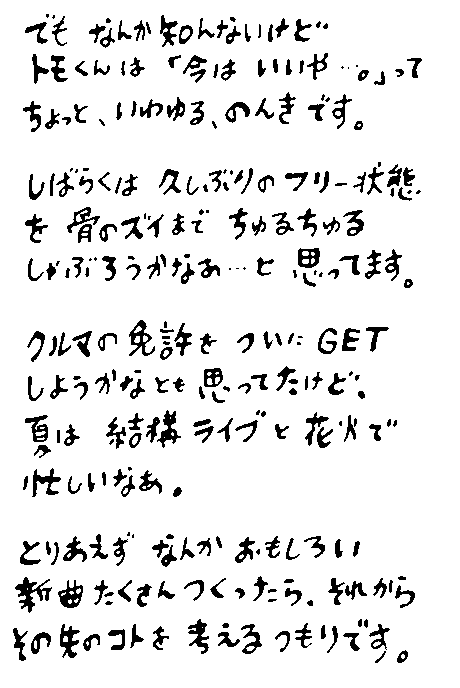 でも なんか知んないけど
トモくんは「今は いいや…。」って
ちょっと、いわゆる、のんきです。
しばらくは 久しぶりのフリー状態
を 骨のズイまで ちゅるちゅる
しゃぶろうかなぁ…と 思ってます。
クルマの免許を ついに GET
しようかなとも思ってたけど、
夏は 結構ライブと花火で
忙しいなぁ。
とりあえず なんか おもしろい
新曲たくさんつくったら、それから
その先のコトを 考えるつもりです。